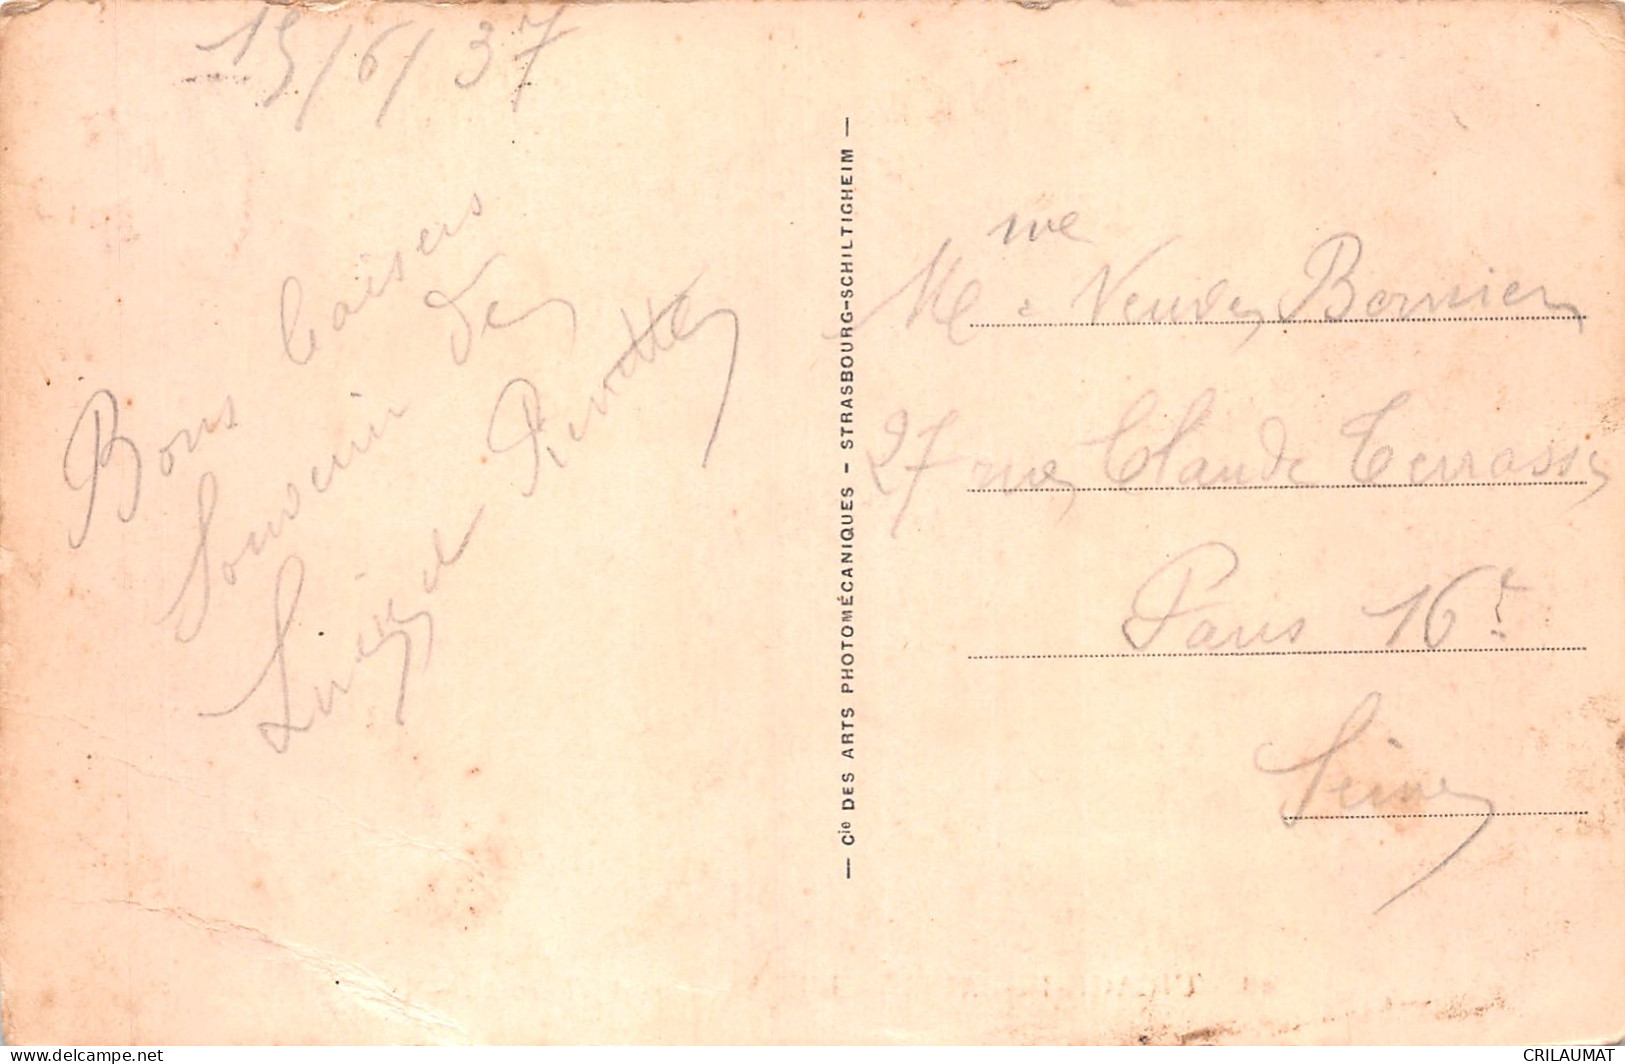 15/6/37
Bons baisers
Souvenir de
Pierrette
Cie DES ARTS PHOTOMÉCANIQUES - STRASBOURG-SCHILTIGHEIM
Mme Veuve Bornier
27 rue Claude Terrasse
Paris 16e
Seine
www.delcampe.net
CRILAUMAT